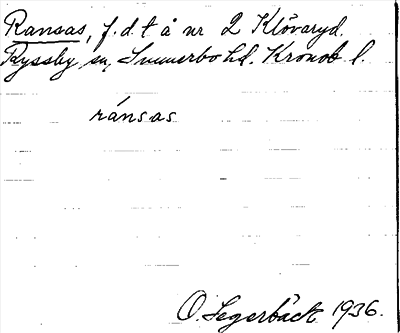 Ransas, f.d. t å nr 2 Klövaryd.
Ryssby sn, Sunnerbo hd. Kronob l.
ránsas
O. Segerbäck 1936.